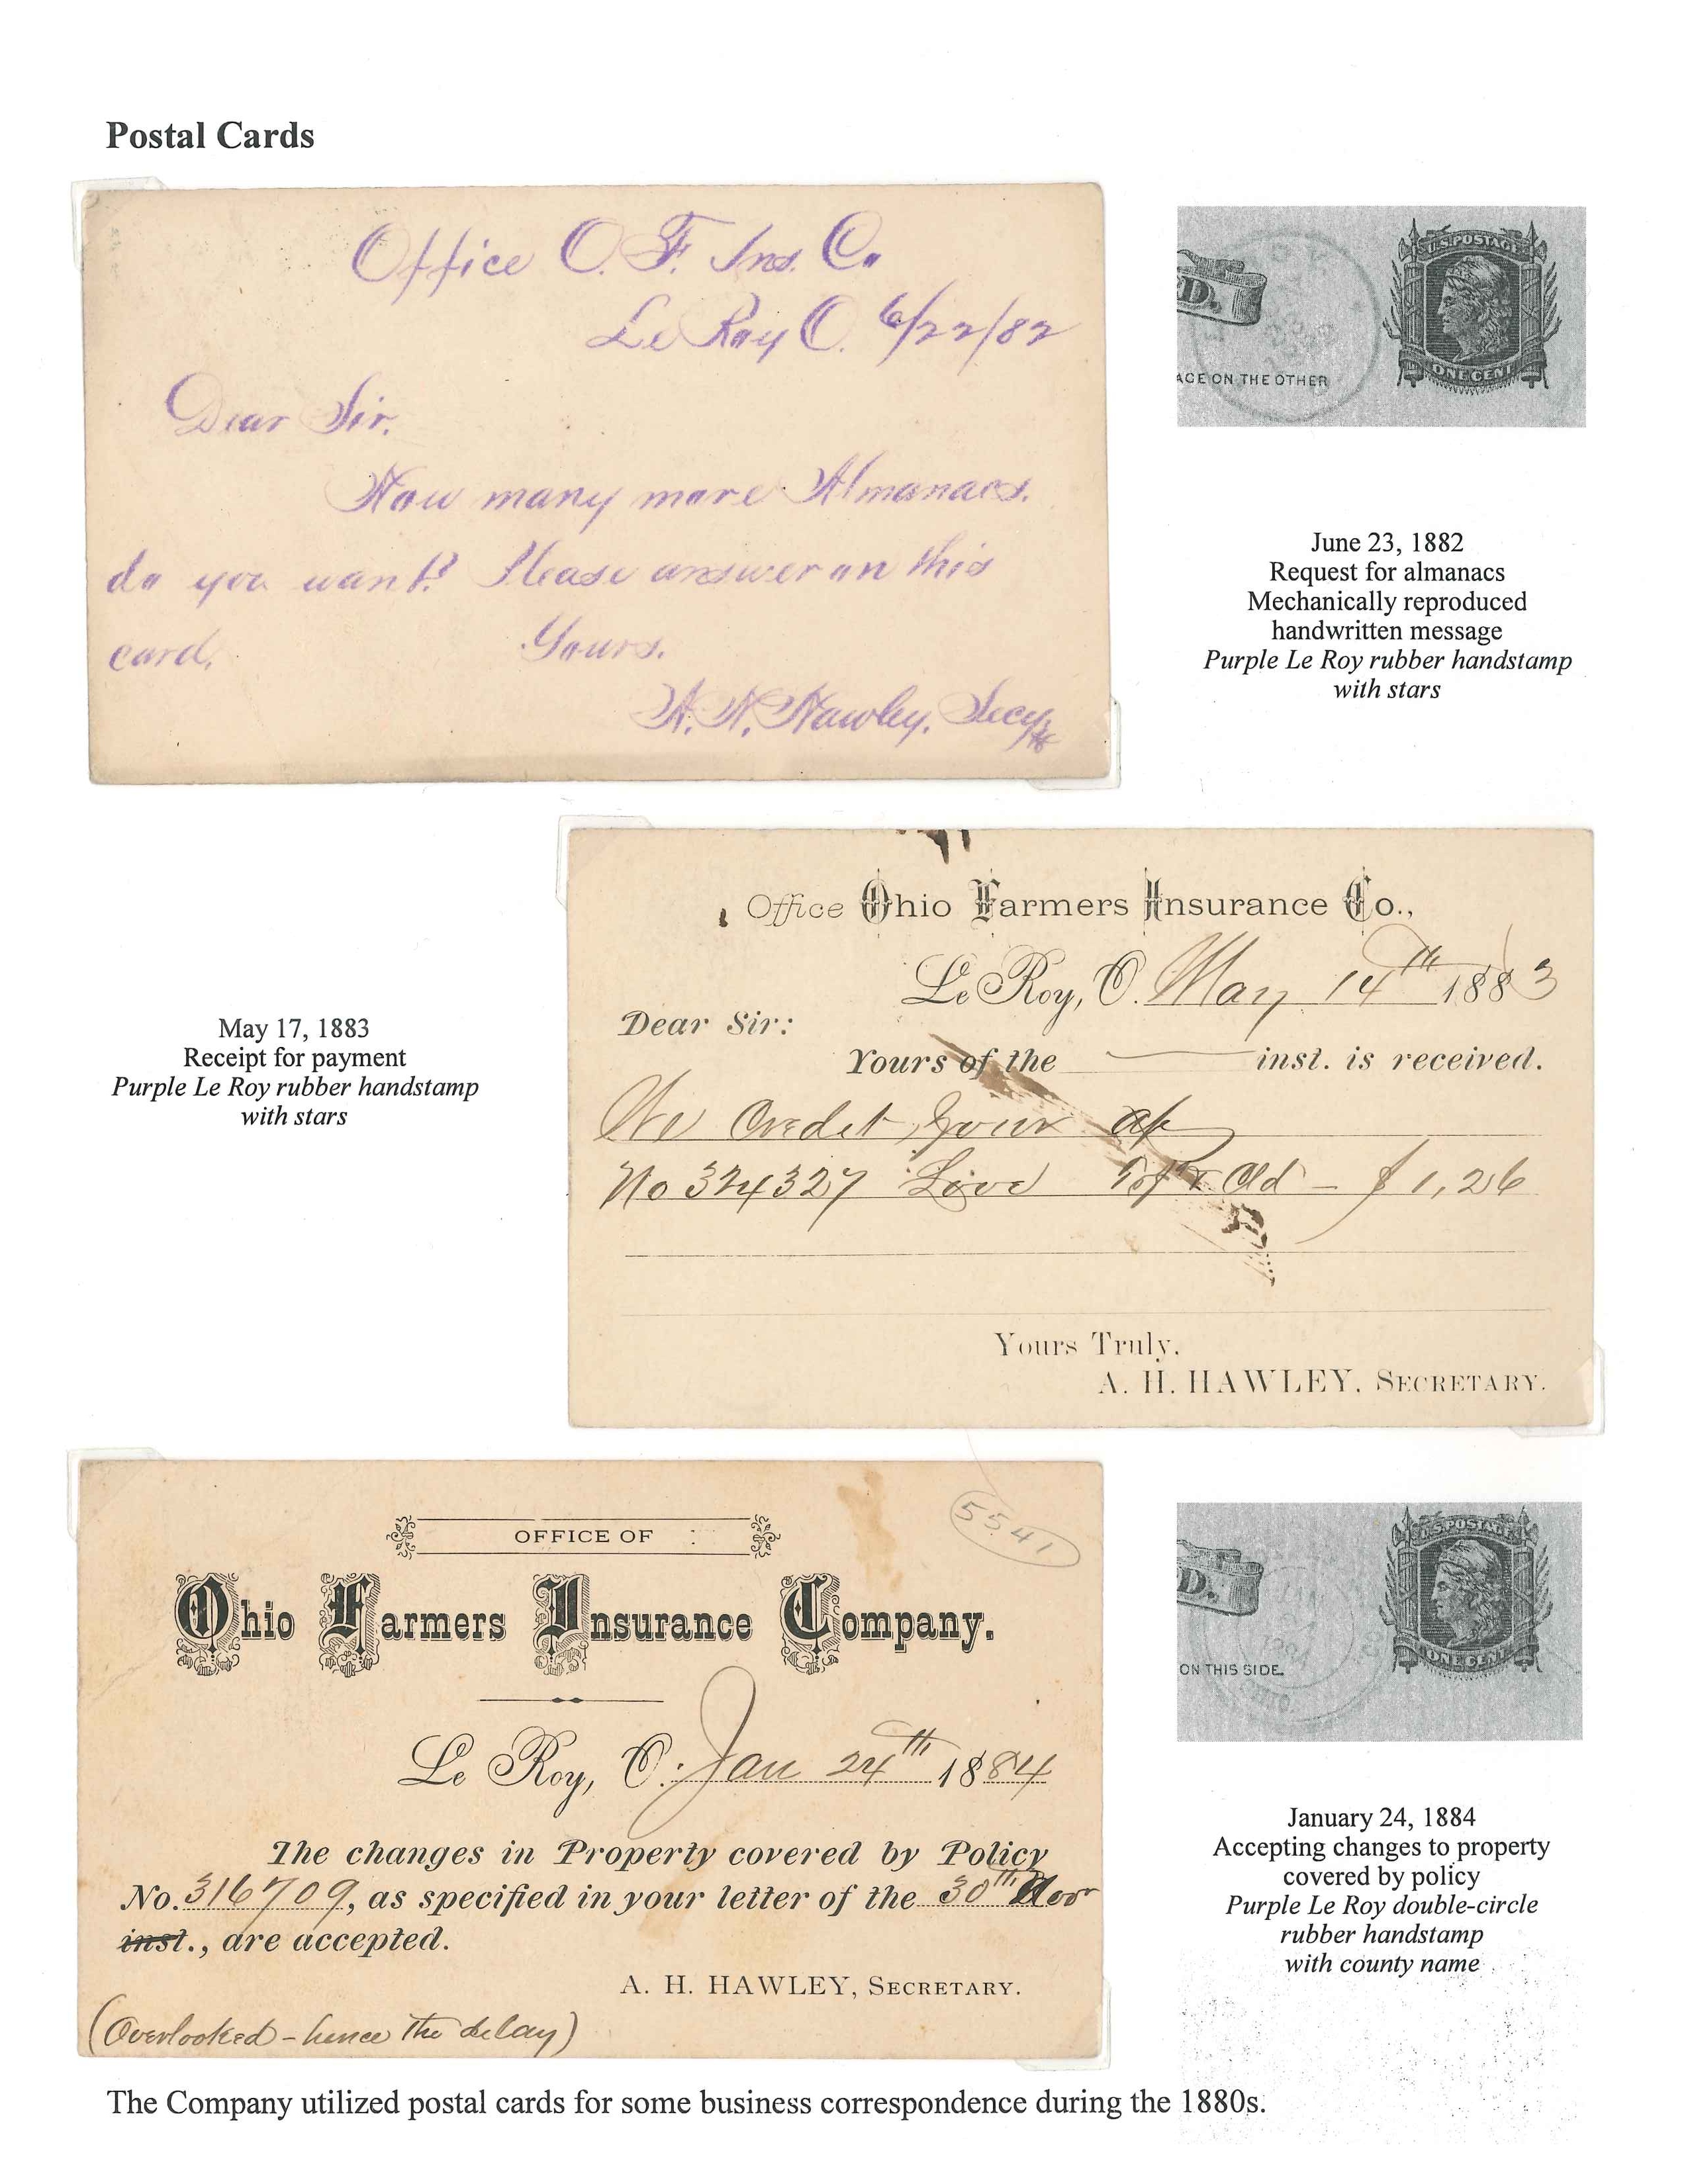 Postal Cards
Office O. F. Ins. Co.
Le Roy O. 6/22/82
Dear Sir.
How many more Almanacs.
do you want? Please answer on this
card.
Yours.
A. H. Hawley, Secy
U.S. POSTAGE
D.
AGE ON THE OTHER
ONE CENT
June 23, 1882
Request for almanacs
Mechanically reproduced
handwritten message
Purple Le Roy rubber handstamp
with stars
Office Ohio Farmers Insurance Co.,
Le Roy, O. May 14th 1883
Dear Sir:
Yours of the inst. is received.
We Credit your
No 324327 Live Old - $1,26
Yours Truly,
A. H. HAWLEY, SECRETARY.
May 17, 1883
Receipt for payment
Purple Le Roy rubber handstamp
with stars
5541
OFFICE OF
Ohio Farmers Insurance Company.
Le Roy, O. Jan 24th 1884
The changes in Property covered by Policy
No. 316709, as specified in your letter of the 30th Nov
inst., are accepted.
A. H. HAWLEY, SECRETARY.
(Overlooked - hence the delay)
U.S. POSTAGE
D.
ON THIS SIDE.
ONE CENT
OHIO.
January 24, 1884
Accepting changes to property
covered by policy
Purple Le Roy double-circle
rubber handstamp
with county name
The Company utilized postal cards for some business correspondence during the 1880s.